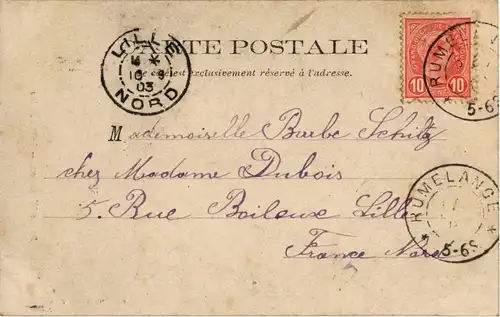 CARTE POSTALE
Ce côté est exclusivement réservé à l'adresse.
LILLE
10
03
NORD
10 10
RUMELANGE
5-6S
Mademoiselle Barbe Schiltz
chez Madame Dubois
5. Rue Boileux Lille
France Nord
RUMELANGE
5-6S